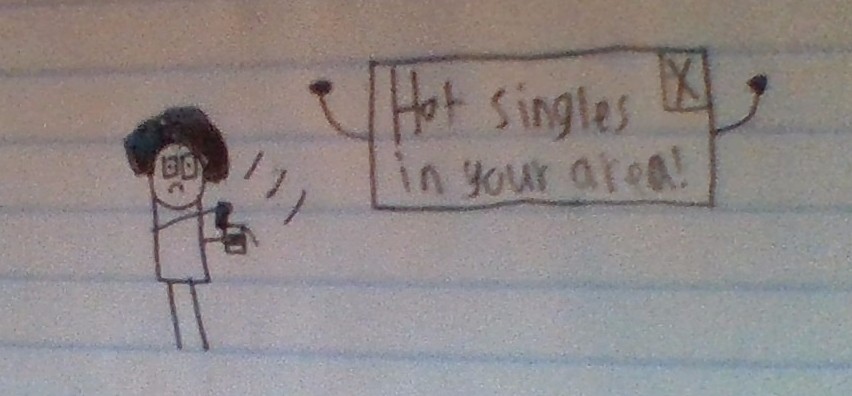 Hot singles X
in your area!